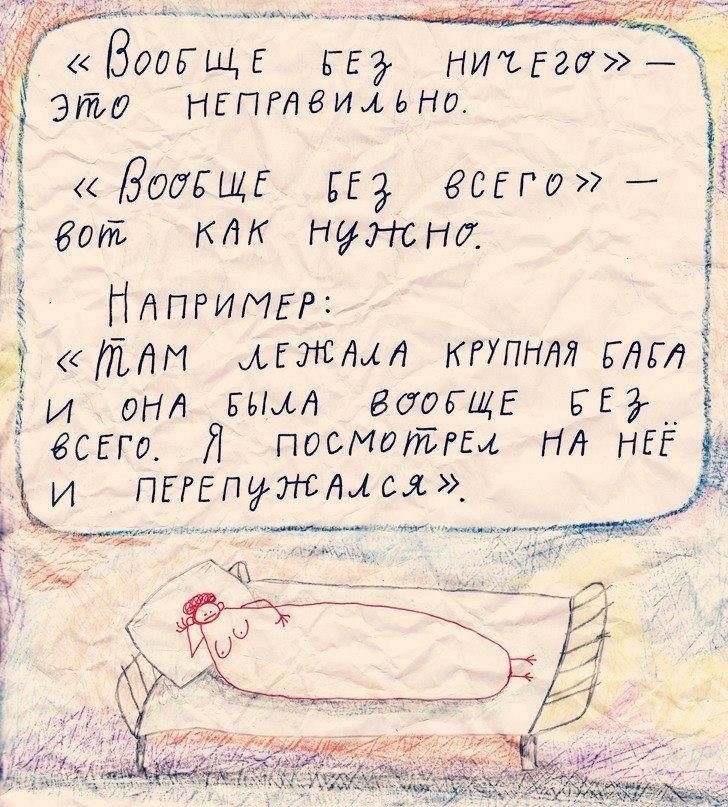 «Вообще без ничего» —
это неправильно.
«Вообще без всего» —
вот как нужно.
Например:
«Там лежала крупная баба
и она была вообще без
всего. Я посмотрел на неё
и перепужался».